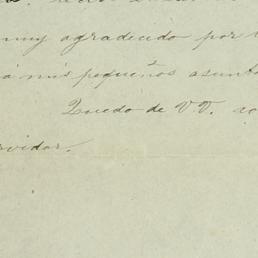 muy agradecido por
á mis pequeños asunt
Quedo de V.V.
rvidor.